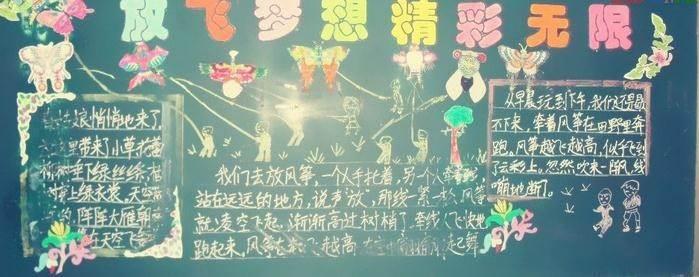 放飞梦想精彩无限
姑娘悄悄地来了
带来了小草花蕾
柳树垂下丝丝绿
上绿衣裳,天空
阵阵大雁
在天空飞
我们去放风筝,一个人手托着,另一个人牵着线
站在远远的地方,说声放,那线一紧一松,风筝
就凌空飞起,渐渐高过树梢了,牵线人飞快地
跑起来,风筝越飞越高
从早晨玩到下午,我们还是歇
不下来,牵着风筝在田野里奔
跑,风筝越飞越高,似乎飞到
云彩上,忽然吹来一阵风,线
嘣地断了。